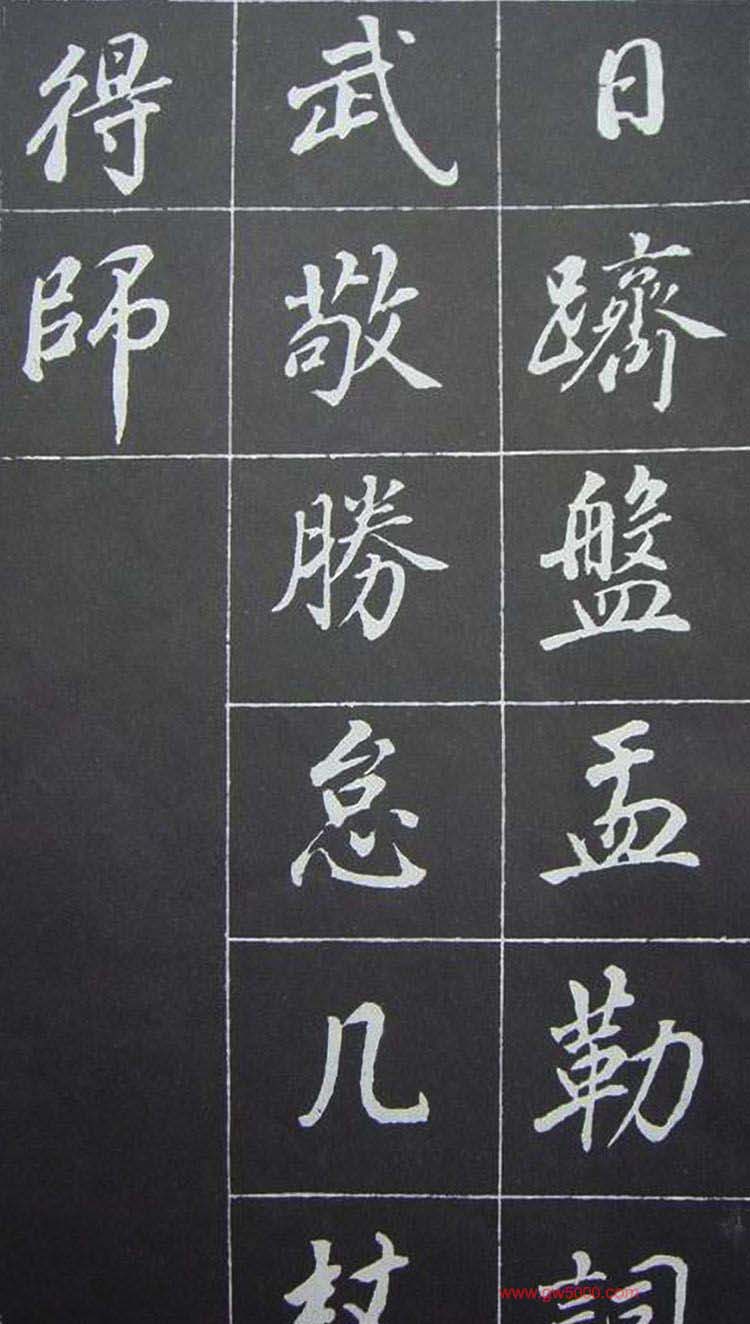 日躋盤盂勒詞
武敬勝怠几杖
得師
www.gw5000.com